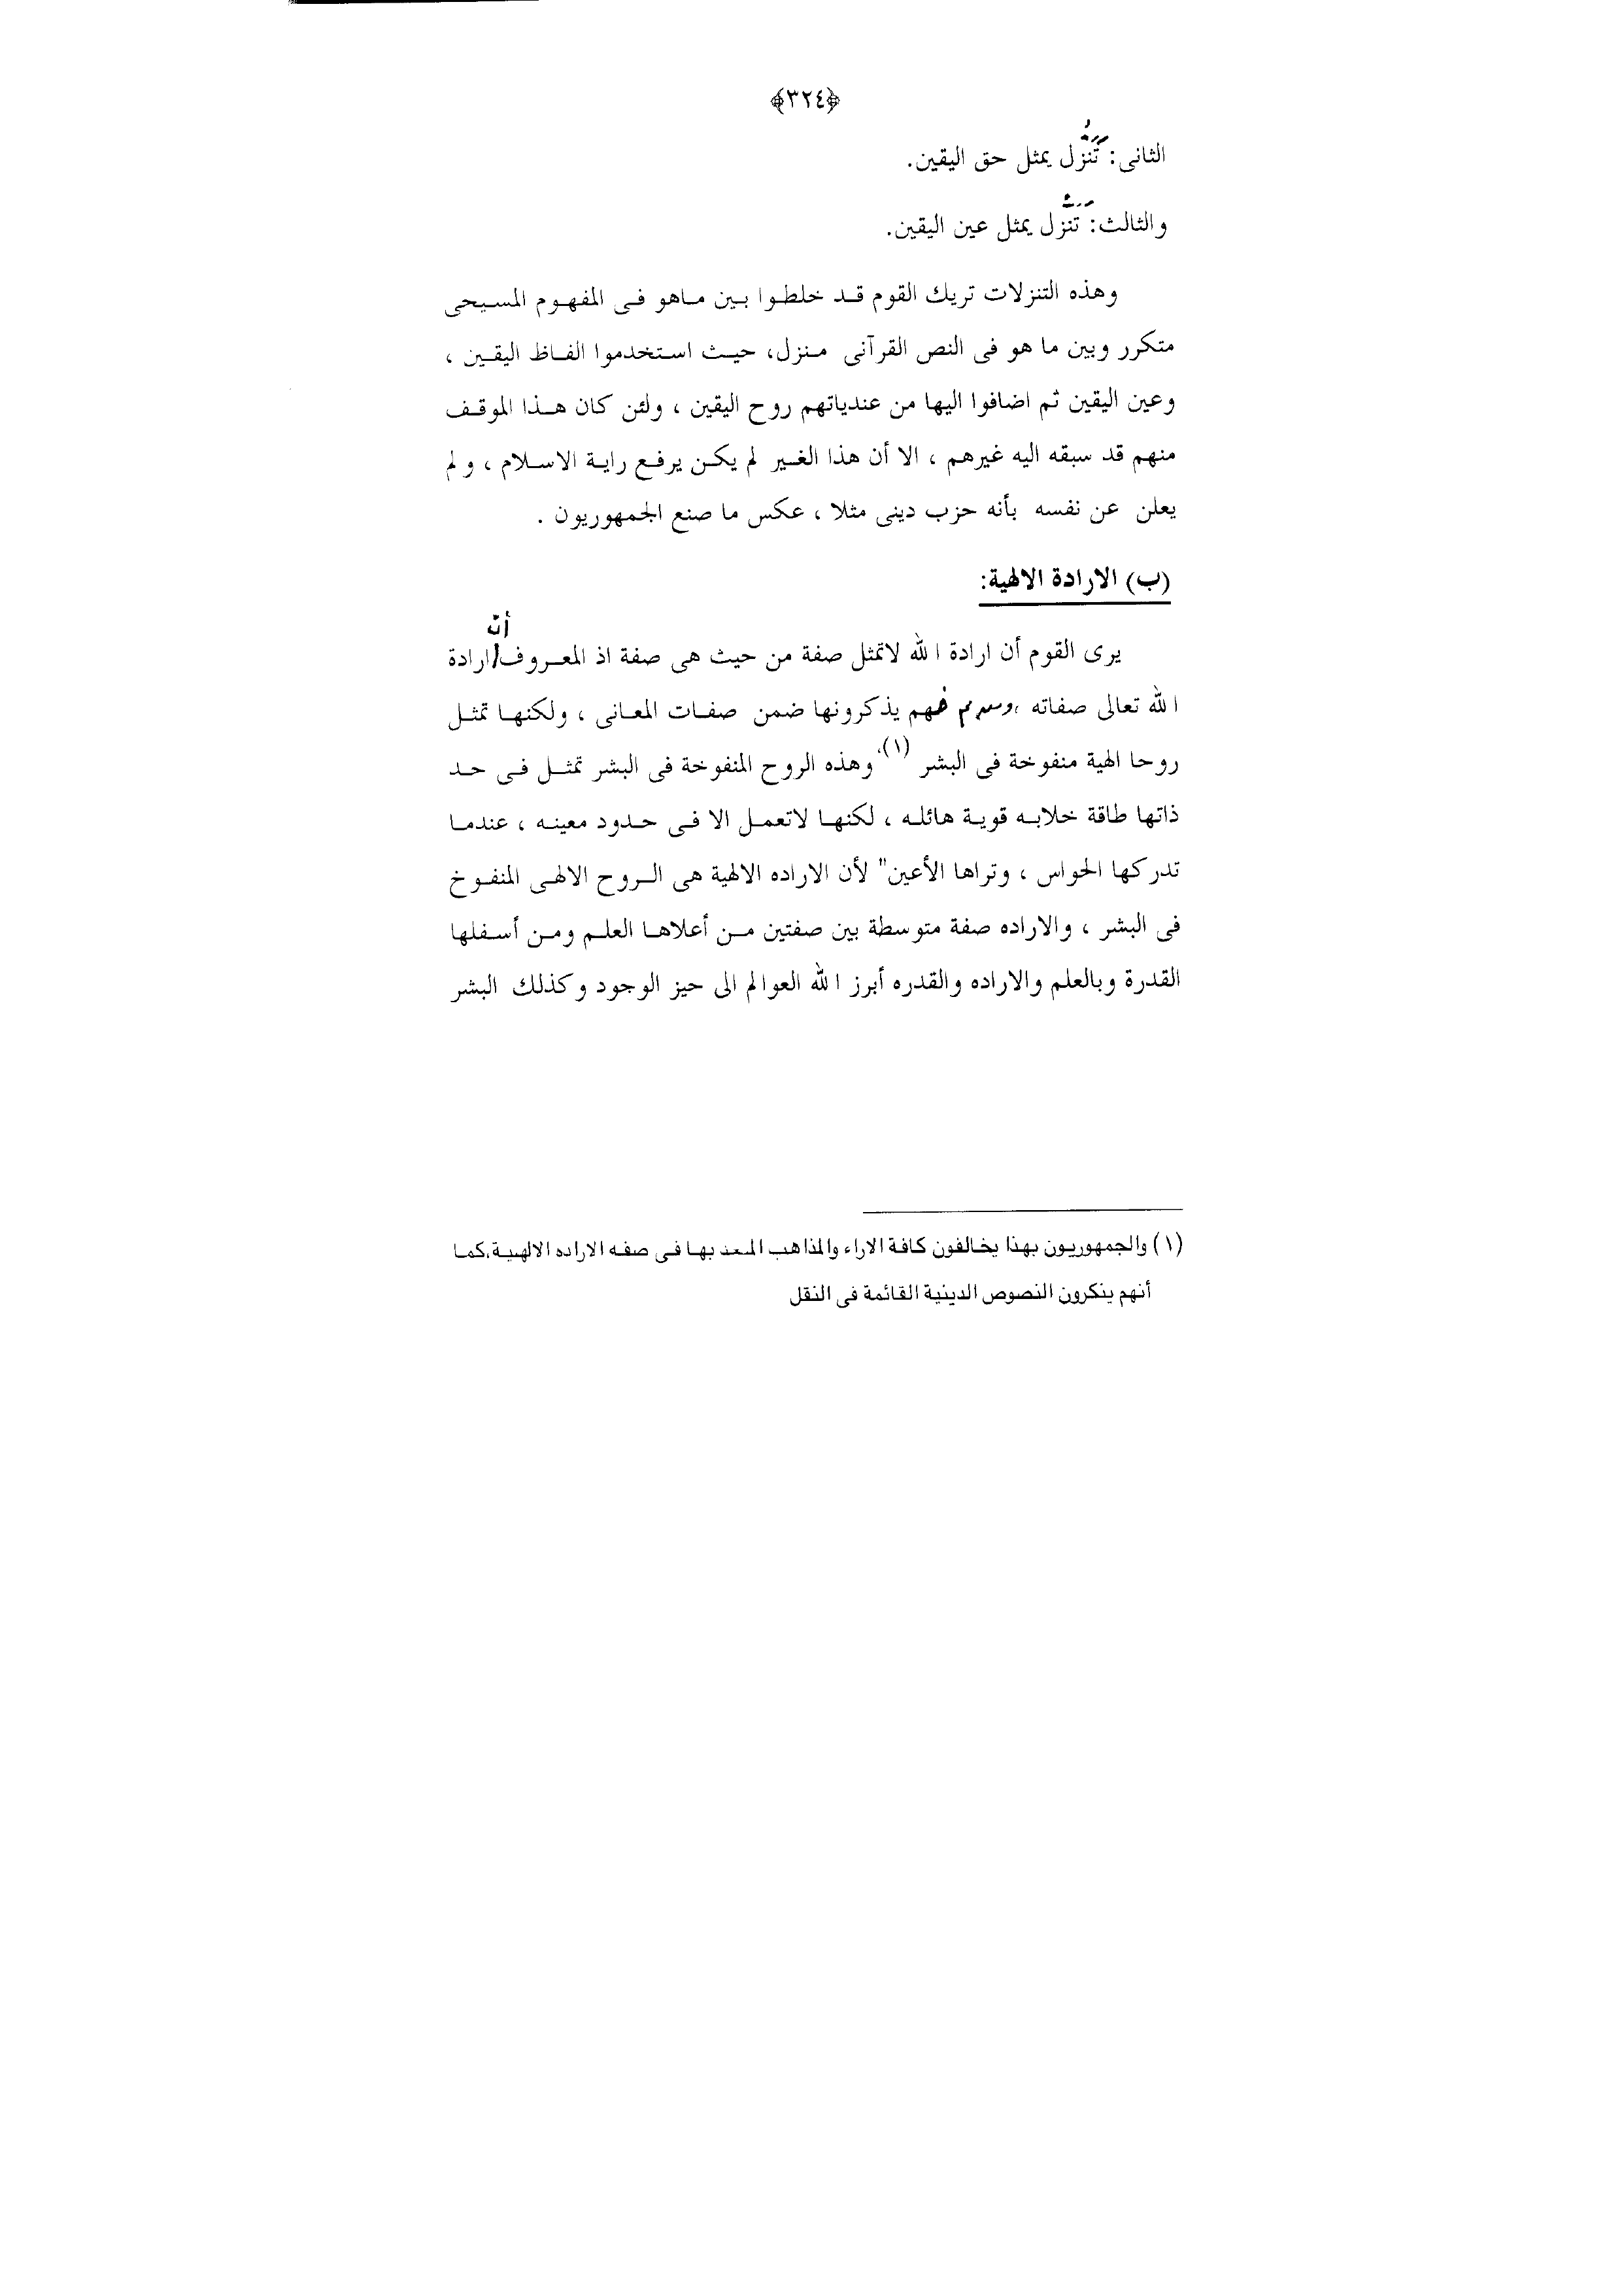 ﴿٣٢٤﴾
الثانى: تَنَزُّل يمثل حق اليقين.
والثالث: تَنَزُّل يمثل عين اليقين.
وهذه التنزلات تريك القوم قد خلطوا بين ماهو فى المفهوم المسيحى
متكرر وبين ما هو فى النص القرآنى منزل، حيث استخدموا الفاظ اليقين ،
وعين اليقين ثم اضافوا اليها من عندياتهم روح اليقين ، ولئن كان هذا الموقف
منهم قد سبقه اليه غيرهم ، الا أن هذا الغير لم يكن يرفع راية الاسلام ، ولم
يعلن عن نفسه بأنه حزب دينى مثلا ، عكس ما صنع الجمهوريون .
(ب) الارادة الالهية:
يرى القوم أن ارادة الله لاتمثل صفة من حيث هى صفة اذ المعروف أن ارادة
الله تعالى صفاته ، يذكرونها ضمن صفات المعانى ، ولكنها تمثل
روحا الهية منفوخة فى البشر (١)، وهذه الروح المنفوخة فى البشر تمثل فى حد
ذاتها طاقة خلابه قوية هائله ، لكنها لاتعمل الا فى حدود معينه ، عندما
تدركها الحواس ، وتراها الأعين" لأن الاراده الالهية هى الروح الالهى المنفوخ
فى البشر ، والاراده صفة متوسطة بين صفتين من أعلاها العلم ومن أسفلها
القدرة وبالعلم والاراده والقدره أبرز الله العوالم الى حيز الوجود وكذلك البشر
(١) والجمهوريون بهذا يخالفون كافة الاراء والمذاهب المعتد بها فى صفه الاراده الالهية، كما
أنهم ينكرون النصوص الدينية القائمة فى النقل